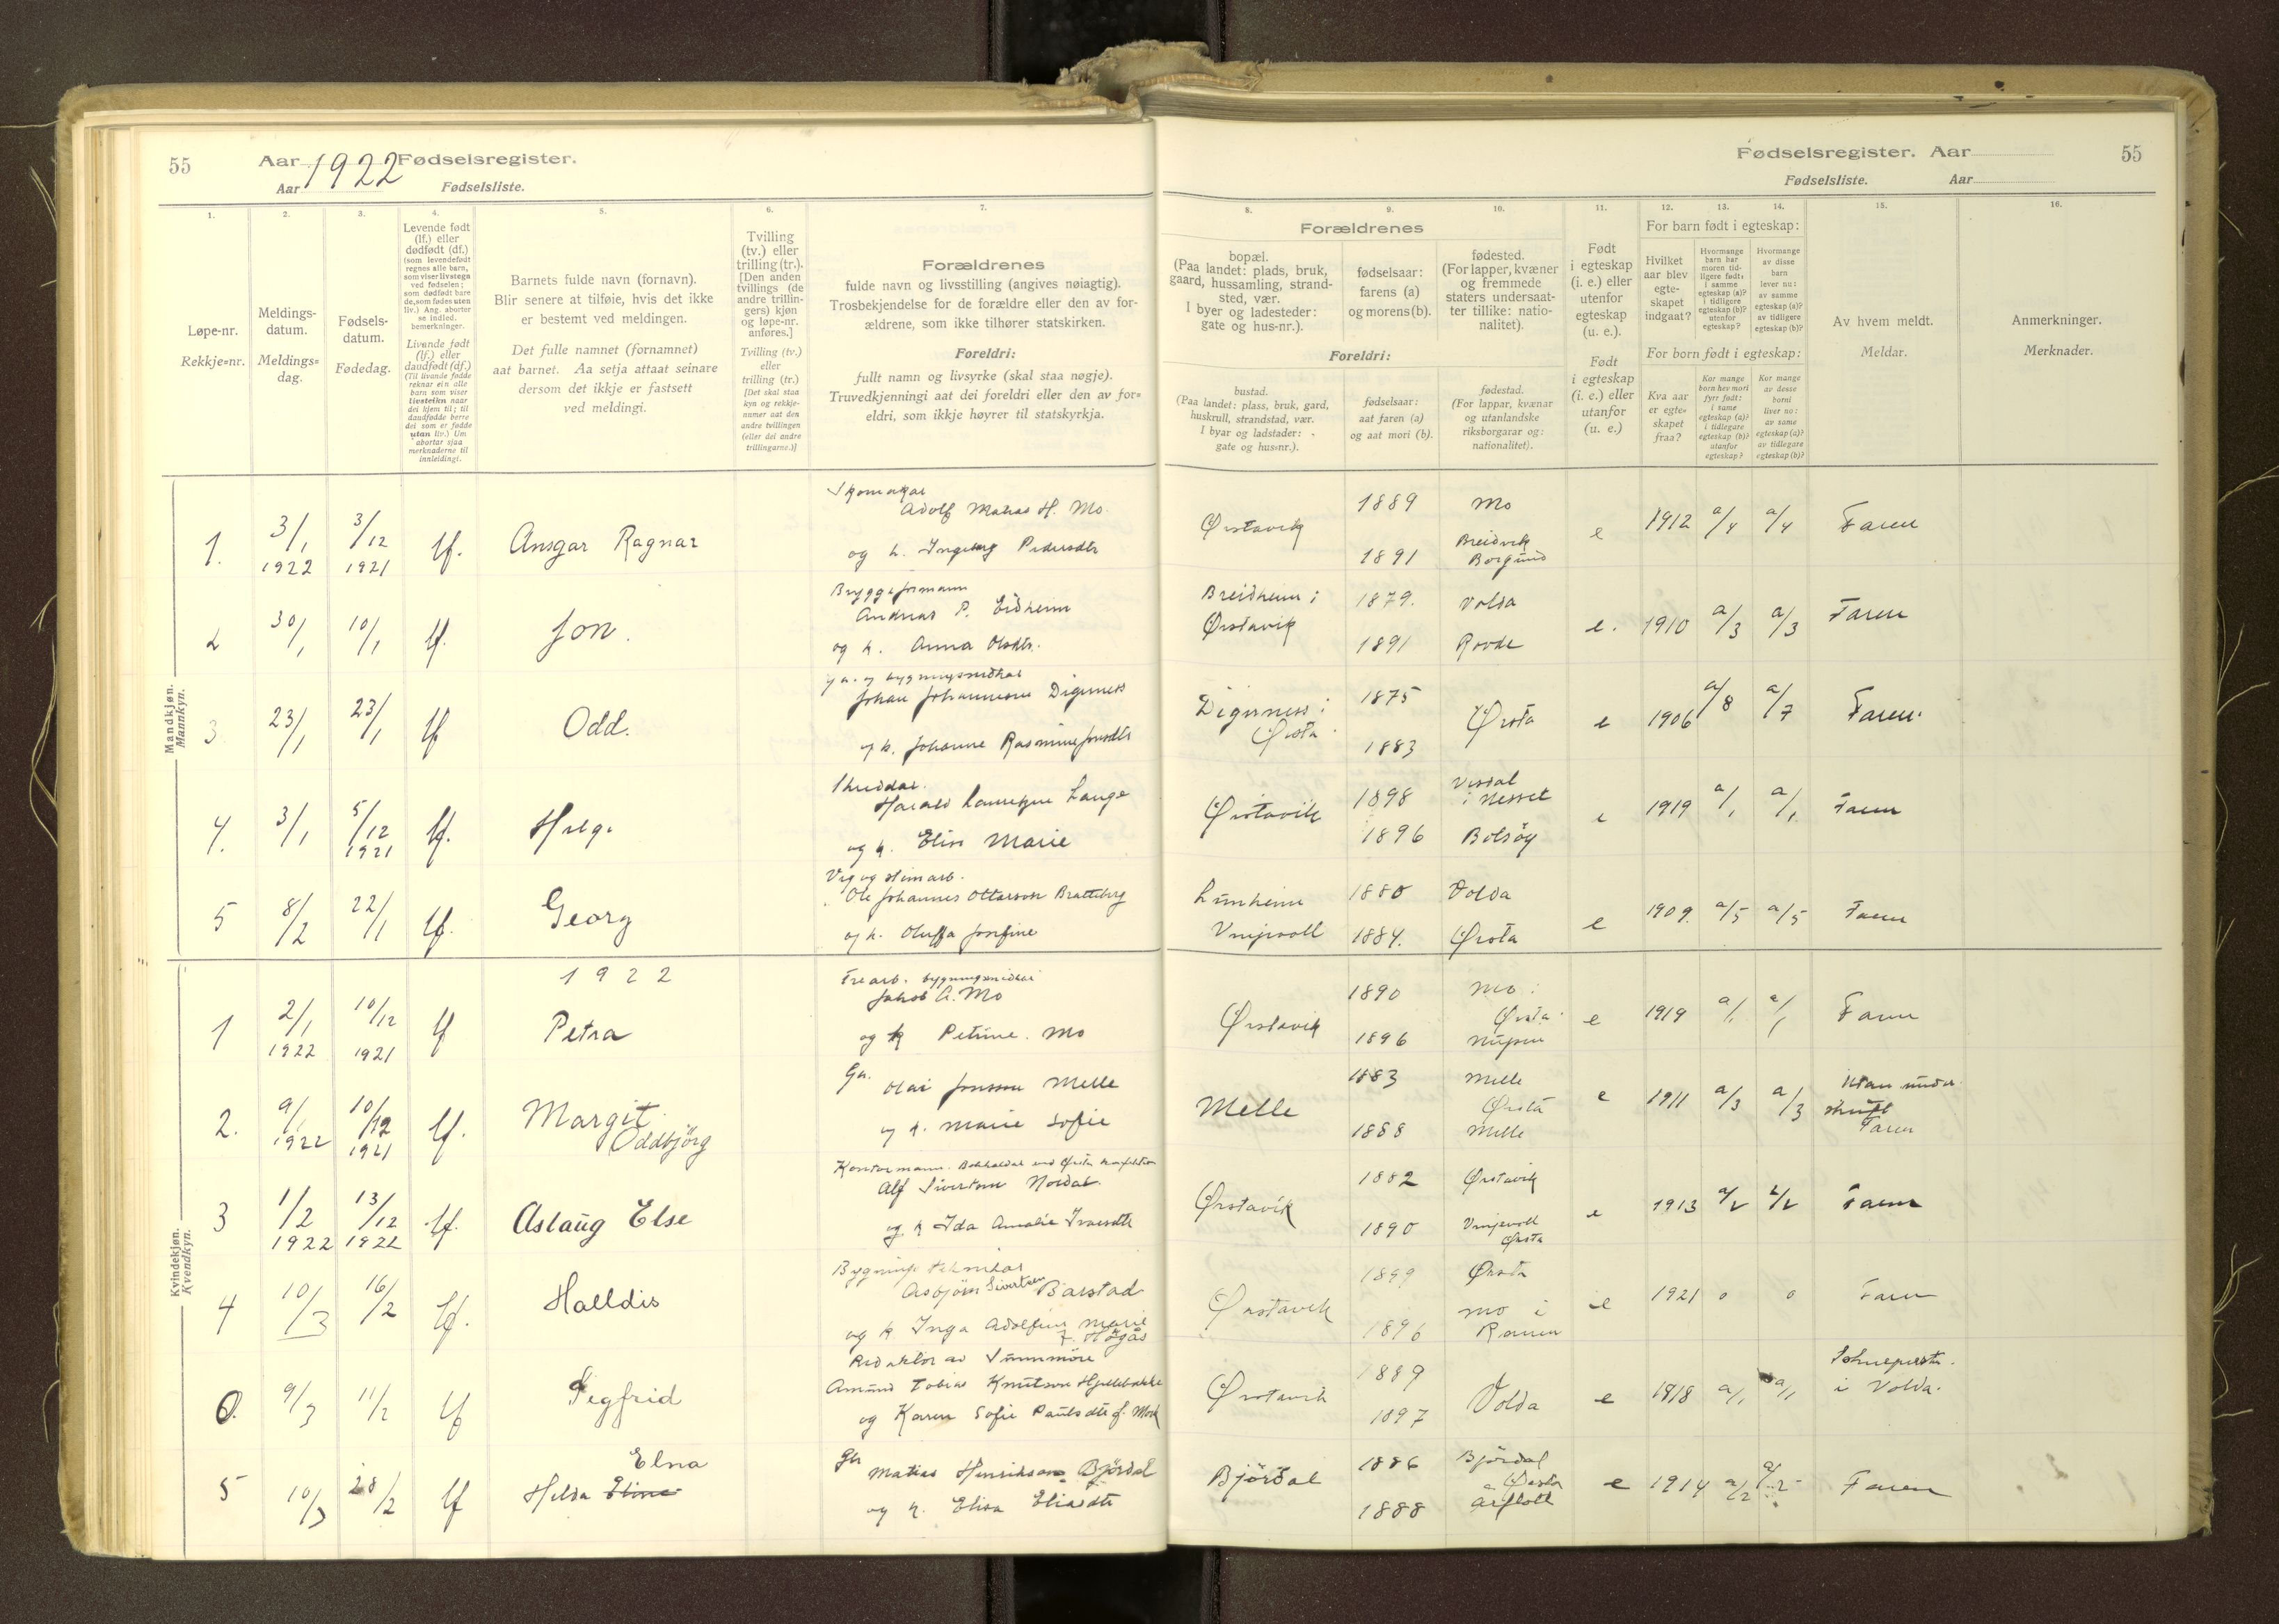 55
Aar 1922 Fødselsregister.
Aar Fødselsliste.
Fødselsregister. Aar
Fødselsliste. Aar
55
1.
2.
3.
4.
5.
6.
7.
8.
9.
10.
11.
12.
13.
14.
15.
16.
Løpe-nr.
Rekkje=nr.
Meldings-
datum.
Meldings=
dag.
Fødsels-
datum.
Fødedag.
Levende født
(lf.) eller
dødfødt (df.)
(som levendefødt
regnes alle barn,
som viser livstegn
ved fødselen;
som dødfødt bare
de, som fødes uten
liv.) Ang. aborter
se indled.
bemerkninger.
Livande født
(lf.) eller
daudfødt (df.)
(Til livande fødde
reknar ein alle
barn som viser
livsteikn naar
dei kjem til; til
daudfødde berre
dei som er fødde
utan liv.) Um
abortar sjaa
merknaderne til
innleidingi.
Barnets fulde navn (fornavn).
Blir senere at tilføie, hvis det ikke
er bestemt ved meldingen.
Det fulle namnet (fornamnet)
aat barnet. Aa setja attaat seinare
dersom det ikkje er fastsett
ved meldingi.
Tvilling
(tv.) eller
trilling (tr.).
[Den anden
tvillings (de
andre trillin-
gers) kjøn
og løpe-nr.
anføres.]
Tvilling (tv.)
eller
trilling (tr.)
[Det skal staa
kyn og rekkje-
numer aat den
andre tvillingen
(eller dei andre
trillingarne.)]
Forældrenes
fulde navn og livsstilling (angives nøiagtig).
Trosbekjendelse for de forældre eller den av for-
ældrene, som ikke tilhører statskirken.
Foreldri:
fullt namn og livsyrke (skal staa nøgje).
Truvedkjenningi aat dei foreldri eller den av for=
eldri, som ikkje høyrer til statskyrkja.
Forældrenes
bopæl.
(Paa landet: plads, bruk,
gaard, hussamling, strand-
sted, vær.
I byer og ladesteder:
gate og hus-nr.).
fødselsaar:
farens (a)
og morens (b).
fødested.
(For lapper, kvæner
og fremmede
staters undersaat-
ter tillike: natio-
nalitet).
Foreldri:
bustad.
(Paa landet: plass, bruk, gard,
huskrull, strandstad, vær.
I byar og ladstader:
gate og hus=nr.).
fødselsaar:
aat faren (a)
og aat mori (b).
fødestad.
(For lappar, kvænar
og utanlandske
riksborgarar og:
nationalitet).
Født
i egteskap
(i. e.) eller
utenfor
egteskap
(u. e.).
Født
i egteskap
(i. e.) eller
utanfor
(u. e.)
For barn født i egteskap:
Hvilket
aar blev
egte-
skapet
indgaat?
Hvormange
barn har
moren tid-
ligere født:
i samme
egteskap (a)?
i tidligere
egteskap (b)?
utenfor
egteskap?
Hvormange
av disse
barn
lever nu:
av samme
egteskap (a)?
av tidligere
egteskap (b)?
For born født i egteskap:
Kva aar
er egte=
skapet
fraa?
Kor mange
born hev mori
fyrr født:
i same
egteskap (a)?
i tidlegare
egteskap (b)?
utanfor
egteskap?
Kor mange
av desse
borni
liver no:
av same
egteskap (a)?
av tidlegare
egteskap (b)?
Av hvem meldt.
Meldar.
Anmerkninger.
Merknader.
Mandkjøn.
Mannkyn.
1. 3/1 1922 3/12 1921 lf. Ansgar Ragnar
Skomakar
Adolf Matias H. Mo.
og k. Ingeborg Pedersdtr
Ørstavik 1889 Mo
1891 Breidvik
Borgund
e 1912 a/4 a/4 Faren
2 30/1 10/1 lf. Jon.
Bryggeformann
Andreas P. Eidheim
og k. Anna Olsdtr.
Breidheim i
Ørstavik 1879. Volda
1891 Rovde
e. 1910 a/3 a/3 Faren
3 23/1 23/1 lf Odd.
Johan Johannesen Digernes
og k. Johanne Rasmine Jonsdtr
Digernes i
Ørsta 1875
1883 Ørsta
e 1906 a/8 a/7 Faren.
4. 3/1 5/12 1921 lf. Helge
Skreddar.
Harald Lauritzen Lange
og k. Elise Marie
Ørstavik 1898 Visdal
i Nesset
1896 Bolsöy
e 1919 a/1 a/1. Faren
5 8/2 22/1 lf. Georg
Veg og steinarb.
Ole Johannes Ottarson Bratteberg
og k. Oluffa Josefine
Lunheim
Vinjevoll 1880 Volda
1884. Ørsta
e 1909. a/5 a/5 Faren
Kvindekjøn.
Kvendkyn.
1922
1 2/1 1922 10/12 1921 lf Petra
Trearb. bygningsmidhar
Jakob A. Mo
og k Petrine. Mo
Ørstavik 1890 Mo i
Ørsta.
1896 Nupen
e 1919 a/1 a/1 Faren
2. 9/1 1922 10/12 1921 lf. Margit
Oddbjörg
Gu.
Olai Jonsson Melle
og k. Marie Sofie
Melle 1883 Melle
Ørsta
1888 Melle
e 1911 a/3 a/3 utan under
skrift
Faren
3 1/2 1922 13/12 1922 lf. Aslaug Else
Kontormann. Bokhaldar ved Ørsta
Alf Sivertsen Nordal
og k Ida Amalie Iversdtr
Ørstavik 1882 Ørstavik
1890 Vinjevoll
Ørsta
e 1913 a/2 a/2 Faren
4 10/3 16/2 lf. Halldis
Bygnings teknikar
Asbjörn Sivertsen Barstad
og k. Inga Adolfine Marie
f. Högås
Ørstavik 1899 Ørsta
1896 Mo i
Ranen
e 1921 0 0 Faren
6. 9/3 11/2 lf Segfrid
Redaktör av Sunnmöre
Amund Tobias Knutson Hjellebakke
og Karen Sofie Paulsdtr f. Mork
Ørstavik 1889
1897 Volda
e 1918 a/1 a/1 Sokneprestn.
i Volda.
5 10/3 28/2 lf Elna
Hilda Eline
Gbr
Matias Henrikson Björdal
og k. Elisa Eliasdtr
Björdal 1886 Björdal
Ørsta
1888 Årflott
e 1914 a/2 a/2 Faren